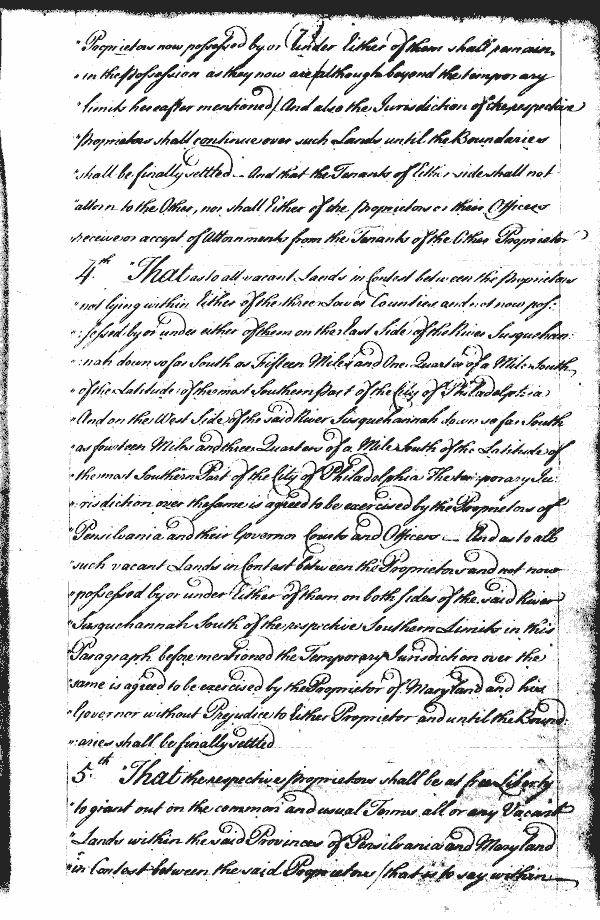 (7)
"Proprietors now possessed by or under Either of them shall remain
"in the Possession as they now are /although beyond the temporary
"limits hereafter mentioned/ And also the Jurisdiction of the respective
"Proprietors shall continue over such Lands until the Boundaries
"shall be finally settled – And that the Tenants of Either side shall not
"attorn to the Other, nor shall Either of the Proprietors or their Officers
"receive or accept of Attornments from the Tenants of the Other Proprietor
4.th "That as to all vacant Lands in Contest between the Proprietors
"not lying within Either of the three Lower Counties and not now pos:
":sessed by or under either of them on the East Side of the River Susquehan:
":nah down so far South as Fifteen Miles and One Quarter of a Mile South
"of the Latitude of the most Southern Part of the City of Philadelphia
"And on the West Side of the said River Susquehannah down so far South
"as fourteen Miles and three Quarters of a Mile South of the Latitude of
"the most Southern Part of the City of Philadelphia The temporary Ju:
":risdiction over the same is agreed to be exercised by the Proprietors of
"Pensilvania and their Governor Courts and Officers – And as to all
"such vacant Lands in Contest between the Proprietors and not now
"possessed by or under Either of them on both sides of the said River
"Susquehannah South of the respective Southern Limits in this
"Paragraph before mentioned the Temporary Jurisdiction over the
"same is agreed to be exercised by the Proprietor of Maryland and his
"Governor without Prejudice to Either Proprietor and until the Bound:
":aries shall be finally settled
5.th "That the respective Proprietors shall be at free Liberty
"to grant out on the common and usual Terms all or any Vacant
"Lands within the said Provinces of Pensilvania and Maryland
"in Contest between the said Proprietors /that is to say within